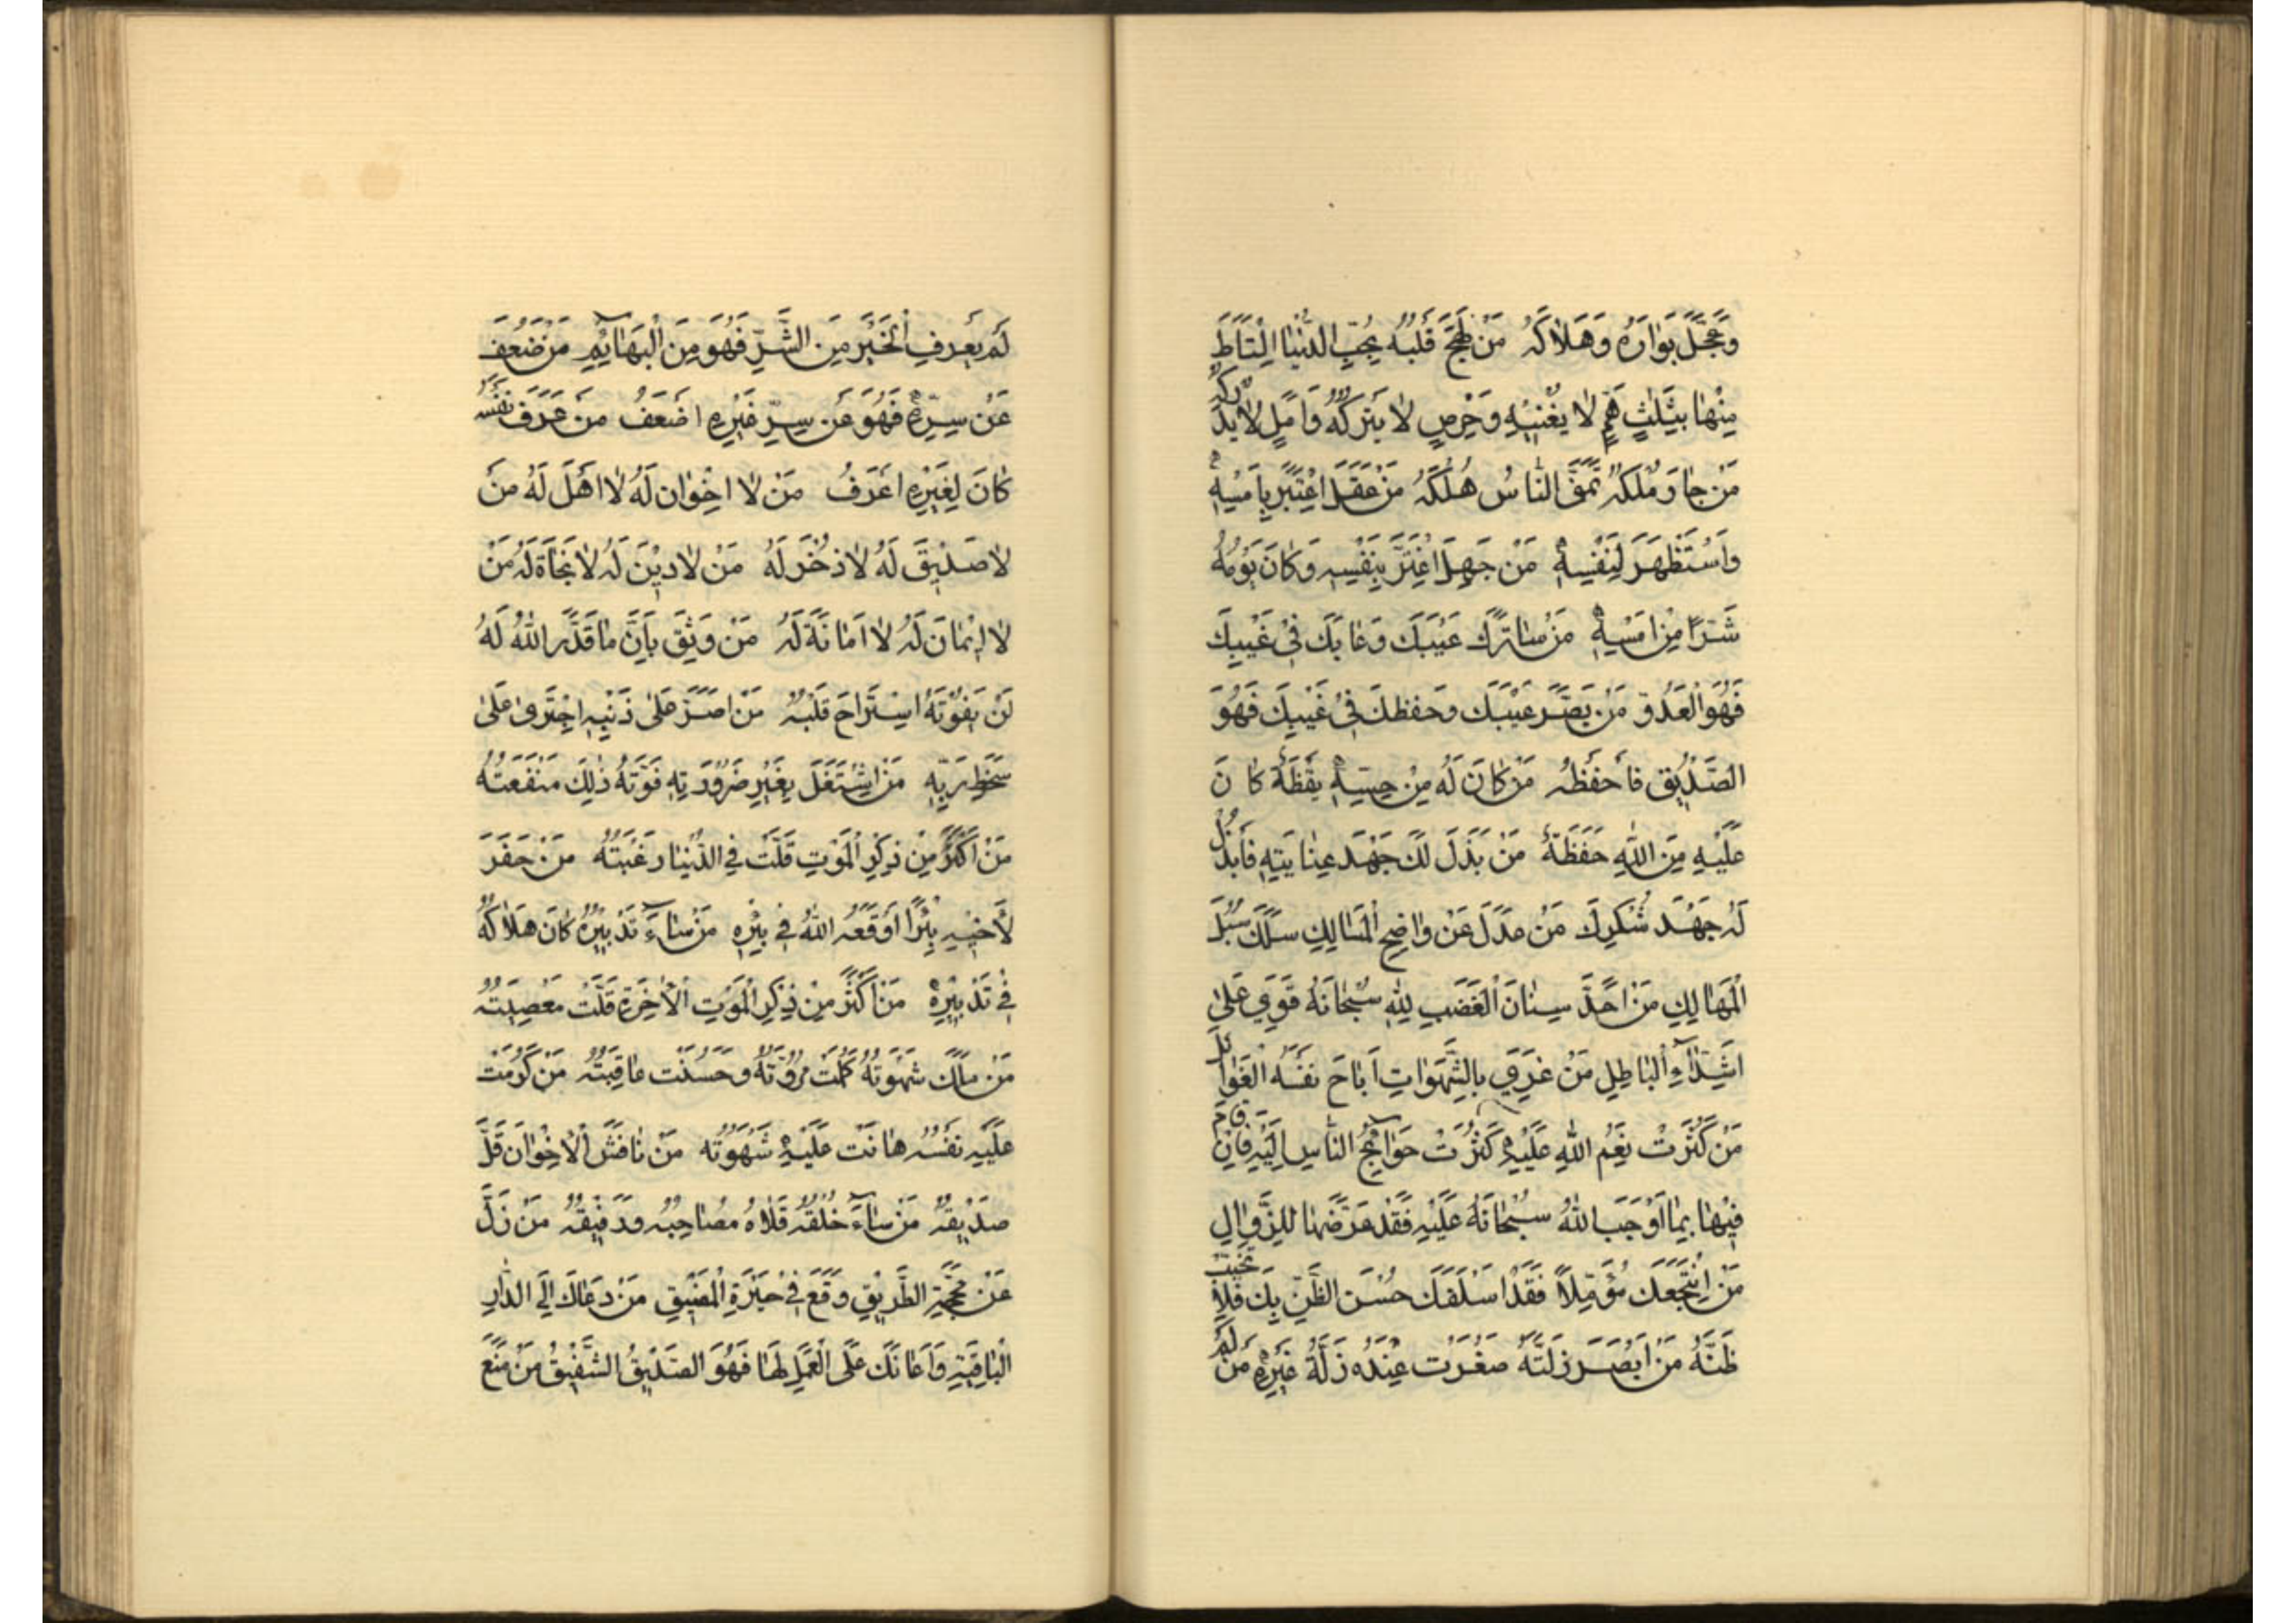 وَعَجَّلَ بَوَارَهُ وَهَلَاكَهُ مَنْ لَهِجَ قَلْبُهُ بِحُبِّ الدُّنْيَا الْتَاطَ
مِنْهَا بِثَلٰثٍ هَمٍّ لَا يُغْنِيْهِ وَحِرْصٍ لَا يَتْرُكُهُ وَاَمَلٍ لَا يُدْرِكُهُ
مَنْ جَارَ مُلْكُهُ تَمَنَّى النَّاسُ هُلْكَهُ مَنْ عَقَلَ اعْتَبَرَ بِاَمْسِهِ
وَاسْتَظْهَرَ لِنَفْسِهِ مَنْ جَهِلَ اغْتَرَّ بِنَفْسِهِ وَكَانَ يَوْمُهُ
شَرًّا مِنْ اَمْسِهِ مَنْ سَاتَرَكَ عَيْبَكَ وَعَابَكَ فِيْ غَيْبِكَ
فَهُوَ الْعَدُوُّ مَنْ بَصَّرَ عَيْبَكَ وَحَفِظَكَ فِيْ غَيْبِكَ فَهُوَ
الصَّدِيْقُ فَاحْفَظْهُ مَنْ كَانَ لَهُ مِنْ حِسِّهِ يَقْظَةٌ كَانَ
عَلَيْهِ مِنَ اللهِ حَفَظَةٌ مَنْ بَذَلَ لَكَ جَهْدَ عِنَايَتِهِ فَابْذُلْ
لَهُ جَهْدَ شُكْرِكَ مَنْ عَدَلَ عَنْ وَاضِحِ الْمَسَالِكِ سَلَكَ سُبُلَ
الْمَهَالِكِ مَنْ اَحَدَّ سِنَانَ الْغَضَبِ لِلّٰهِ سُبْحَانَهُ قَوِيَ عَلٰى
اَشِدَّاءِ الْبَاطِلِ مَنْ غَرِيَ بِالشَّهَوَاتِ اَبَاحَ نَفْسَهُ الْغَوَائِلَ
مَنْ كَثُرَتْ نِعَمُ اللهِ عَلَيْهِ كَثُرَتْ حَوَائِجُ النَّاسِ اِلَيْهِ فَاِنْ قَامَ
فِيْهَا بِمَا اَوْجَبَ اللهُ سُبْحَانَهُ عَلَيْهِ فَقَدْ عَرَّضَهَا لِلزَّوَالِ
مَنِ انْتَجَعَكَ مُؤَمِّلًا فَقَدْ اَسْلَفَكَ حُسْنَ الظَّنِّ بِكَ فَلَا تُخَيِّبْ
ظَنَّهُ مَنْ اَبْصَرَ زَلَّتَهُ صَغُرَتْ عِنْدَهُ زَلَّةُ غَيْرِهِ مَنْ لَمْ
لَمْ يَعْرِفِ الْخَيْرَ مِنَ الشَّرِّ فَهُوَ مِنَ الْبَهَائِمِ مَنْ ضَعُفَ
عَنْ سِرِّهِ فَهُوَ عَنْ سِرِّ غَيْرِهِ اَضْعَفُ مَنْ عَرَفَ نَفْسَهُ
كَانَ لِغَيْرِهِ اَعْرَفُ مَنْ لَا اِخْوَانَ لَهُ لَا اَهْلَ لَهُ مَنْ
لَا صَدِيْقَ لَهُ لَا ذُخْرَ لَهُ مَنْ لَا دِيْنَ لَهُ لَا نَجَاةَ لَهُ مَنْ
لَا اِيْمَانَ لَهُ لَا اَمَانَةَ لَهُ مَنْ وَثِقَ بِاَنَّ مَا قَدَّرَ اللهُ لَهُ
لَنْ يَفُوْتَهُ اسْتَرَاحَ قَلْبُهُ مَنْ اَصَرَّ عَلٰى ذَنْبِهِ اجْتَرٰى عَلٰى
سَخَطِ رَبِّهِ مَنِ اشْتَغَلَ بِغَيْرِ ضَرُوْرَتِهِ فَوَّتَهُ ذٰلِكَ مَنْفَعَتَهُ
مَنْ اَكْثَرَ مِنْ ذِكْرِ الْمَوْتِ قَلَّتْ فِي الدُّنْيَا رَغْبَتُهُ مَنْ حَفَرَ
لِاَخِيْهِ بِئْرًا اَوْقَعَهُ اللهُ فِيْ بِئْرِهِ مَنْ سَاءَ تَدْبِيْرُهُ كَانَ هَلَاكُهُ
فِيْ تَدْبِيْرِهِ مَنْ اَكْثَرَ مِنْ ذِكْرِ الْمَوْتِ الْاٰخِرَةِ قَلَّتْ مَعْصِيَتُهُ
مَنْ مَلَكَ شَهْوَتَهُ كَمُلَتْ مُرُوَّتُهُ وَحَسُنَتْ عَاقِبَتُهُ مَنْ كَرُمَتْ
عَلَيْهِ نَفْسُهُ هَانَتْ عَلَيْهِ شَهْوَتُهُ مَنْ نَاقَشَ الْاِخْوَانَ قَلَّ
صَدِيْقُهُ مَنْ سَاءَ خُلُقُهُ قَلَاهُ مُصَاحِبُهُ وَرَفِيْقُهُ مَنْ زَلَّ
عَنْ مَحَجَّةِ الطَّرِيْقِ وَقَعَ فِيْ حَيْرَةِ الْمَضِيْقِ مَنْ دَعَاكَ اِلَى الدَّارِ
الْبَاقِيَةِ وَاَعَانَكَ عَلَى الْعَمَلِ لَهَا فَهُوَ الصَّدِيْقُ الشَّفِيْقُ مَنْ مَنَعَ